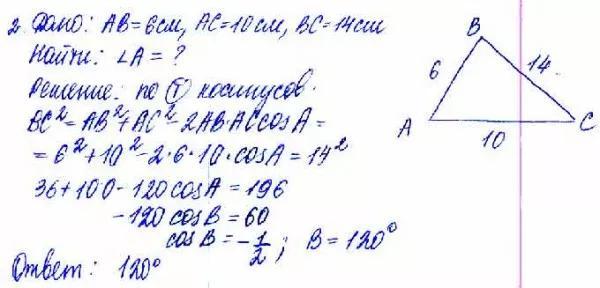 2. Дано: AB=6см, AC=10см, BC=14см
Найти: ∠A=?
Решение: по Т косинусов.
BC²=AB²+AC²-2AB·AC cosA=
=6²+10²-2·6·10·cosA=14²
36+100-120cosA=196
-120cosB=60
cosB=-1/2; B=120°
Ответ: 120°
B
6
14
A
C
10